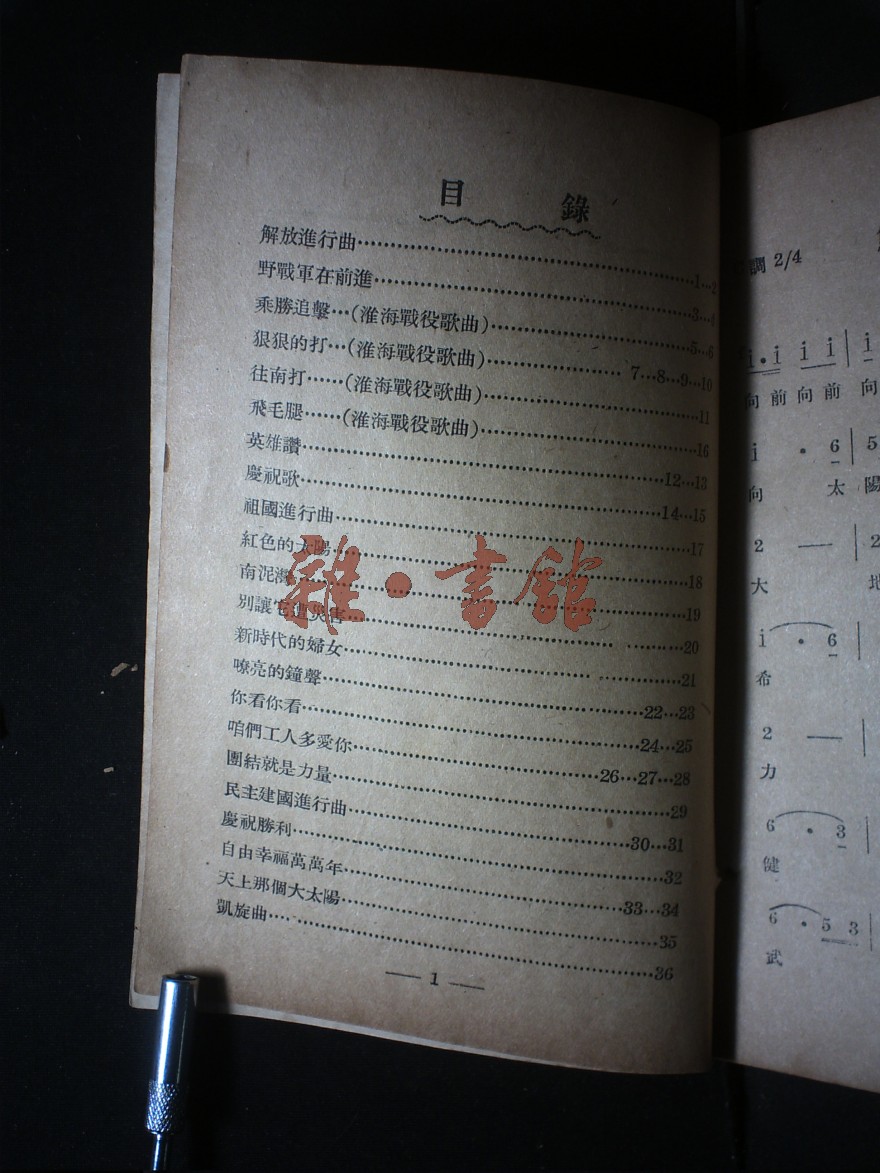 目 錄
解放進行曲……1…2
野戰軍在前進……3…4
乘勝追擊…(淮海戰役歌曲)……5…6
狠狠的打…(淮海戰役歌曲)……7…8…9…10
往南打……(淮海戰役歌曲)……11
飛毛腿……(淮海戰役歌曲)……16
英雄讚……12…13
慶祝歌……14…15
祖國進行曲……17
紅色的太陽……18
南泥灣……19
別讓它遭災害……20
新時代的婦女……21
嘹亮的鐘聲……22…23
你看你看……24…25
咱們工人多愛你……26…27…28
團結就是力量……29
民主建國進行曲……30…31
慶祝勝利……32
自由幸福萬萬年……33…34
天上那個大太陽……35
凱旋曲……36
— 1 —
雜·書館
調 2/4
i·i i i | i
向前向前 向
i · 6 | 5
向 太 陽
2 — | 2
大 地
i · 6
希
2 — |
力
6 · 3
健
6 · 5 3
武